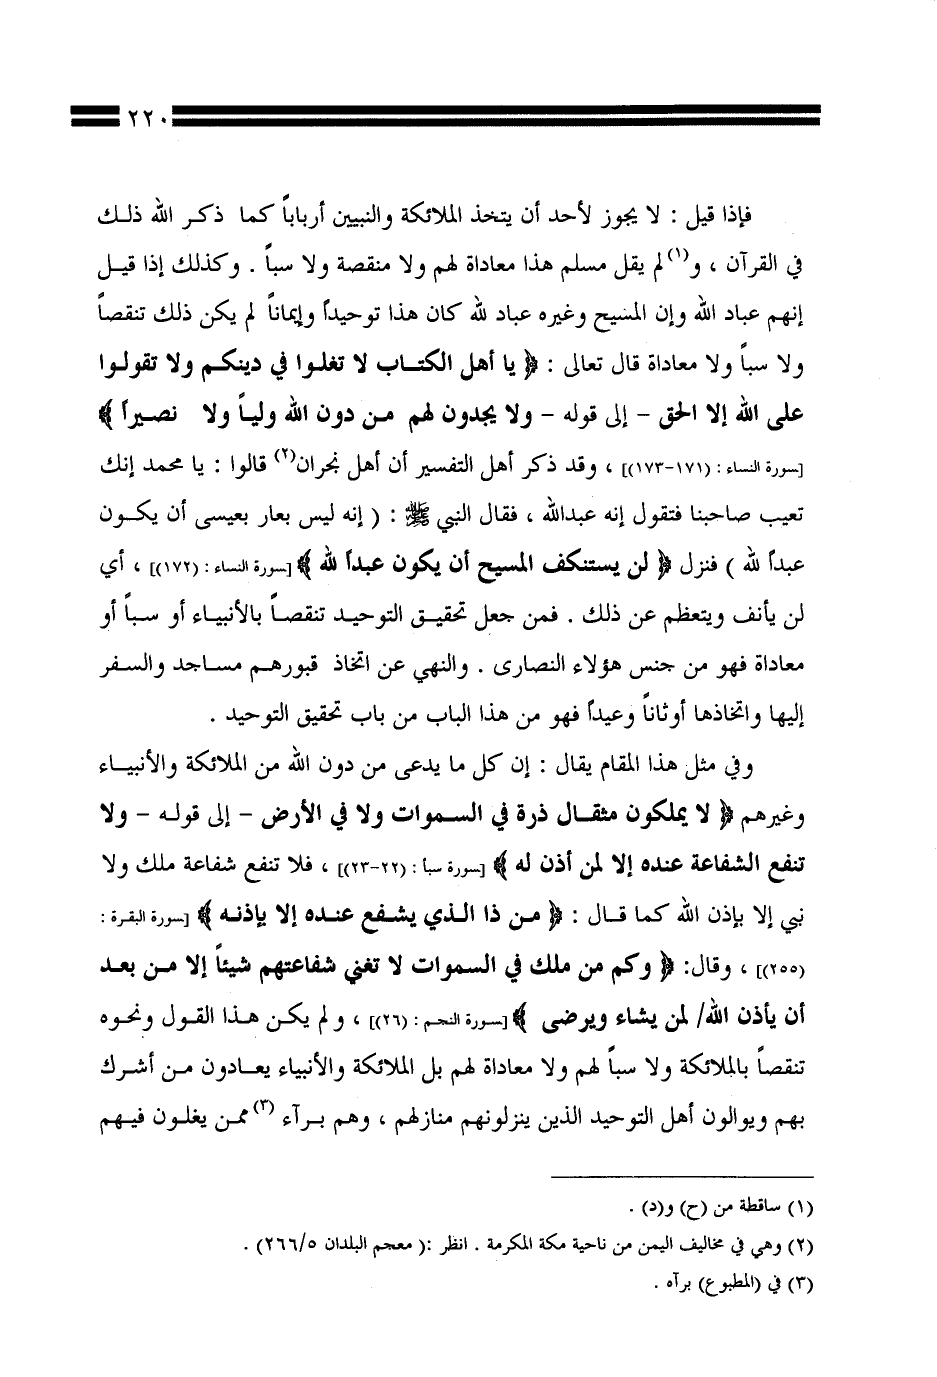 ٢٢٠
فإذا قيل : لا يجوز لأحد أن يتخذ الملائكة والنبيين أرباباً كما ذكر الله ذلك
في القرآن ، و(١)لم يقل مسلم هذا معاداة لهم ولا منقصة ولا سباً . وكذلك إذا قيل
إنهم عباد الله وإن المسيح وغيره عباد لله كان هذا توحيداً وإيماناً لم يكن ذلك تنقصاً
ولا سباً ولا معاداة قال تعالى : ﴿ يا أهل الكتاب لا تغلوا في دينكم ولا تقولوا
على الله إلا الحق – إلى قوله – ولا يجدون لهم من دون الله ولياً ولا نصيراً ﴾
[سورة النساء : (١٧١-١٧٣)] ، وقد ذكر أهل التفسير أن أهل نجران(٢) قالوا : يا محمد إنك
تعيب صاحبنا فتقول إنه عبدالله ، فقال النبي ﷺ : ( إنه ليس بعار بعيسى أن يكون
عبداً لله ) فنزل ﴿ لن يستنكف المسيح أن يكون عبداً لله ﴾ [سورة النساء : (١٧٢)] ، أي
لن يأنف ويتعظم عن ذلك . فمن جعل تحقيق التوحيد تنقصاً بالأنبياء أو سباً أو
معاداة فهو من جنس هؤلاء النصارى . والنهي عن اتخاذ قبورهم مساجد والسفر
إليها واتخاذها أوثاناً وعيداً فهو من هذا الباب من باب تحقيق التوحيد .
وفي مثل هذا المقام يقال : إن كل ما يدعى من دون الله من الملائكة والأنبياء
وغيرهم ﴿ لا يملكون مثقال ذرة في السموات ولا في الأرض – إلى قوله – ولا
تنفع الشفاعة عنده إلا لمن أذن له ﴾ [سورة سبأ : (٢٢-٢٣)] ، فلا تنفع شفاعة ملك ولا
نبي إلا بإذن الله كما قال : ﴿ من ذا الذي يشفع عنده إلا بإذنه ﴾ [سورة البقرة :
(٢٥٥)] ، وقال: ﴿ وكم من ملك في السموات لا تغني شفاعتهم شيئاً إلا من بعد
أن يأذن الله/ لمن يشاء ويرضى ﴾ [سورة النجم : (٢٦)] ، ولم يكن هذا القول ونحوه
تنقصاً بالملائكة ولا سباً لهم ولا معاداة لهم بل الملائكة والأنبياء يعادون من أشرك
بهم ويوالون أهل التوحيد الذين ينزلونهم منازلهم ، وهم برآء (٣)ممن يغلون فيهم
(١) ساقطة من (ح) و(د) .
(٢) وهي في مخاليف اليمن من ناحية مكة المكرمة . انظر :( معجم البلدان ٢٦٦/٥) .
(٣) في (المطبوع) برآه .